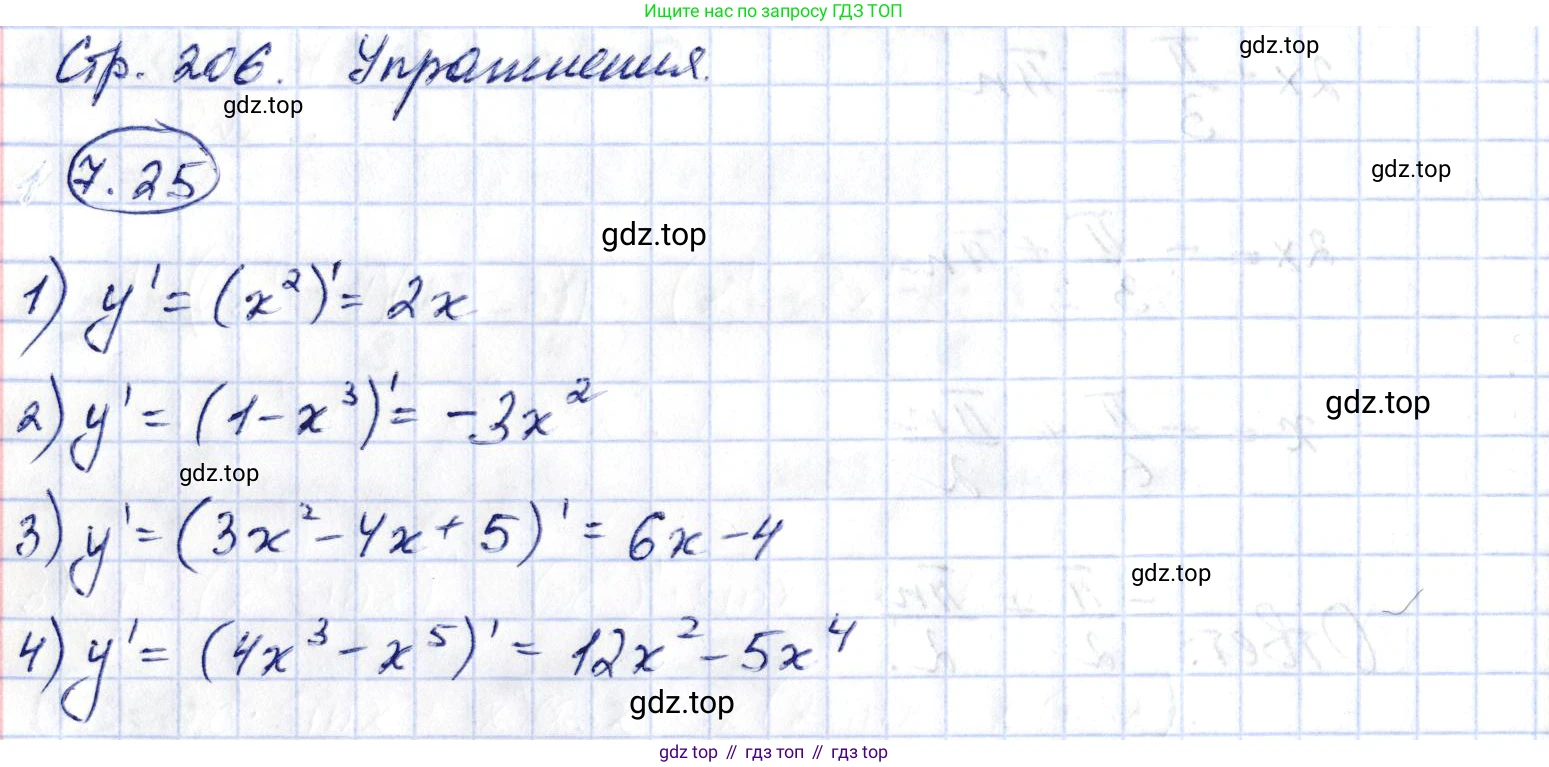 Ищите нас по запросу ГДЗ ТОП
Стр. 206. Упражнения.
gdz.top
gdz.top
7.25
gdz.top
gdz.top
1) y' = (x²)' = 2x
2) y' = (1 - x³)' = -3x²
gdz.top
gdz.top
3) y' = (3x² - 4x + 5)' = 6x - 4
gdz.top
4) y' = (4x³ - x⁵)' = 12x² - 5x⁴
gdz.top
gdz top // гдз топ // гдз top